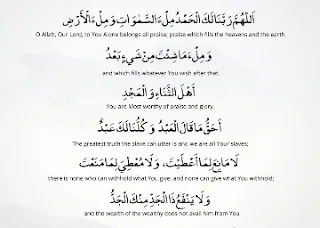 اَللّٰهُمَّ رَبَّنَا لَكَ الْحَمْدُ مِلْءَ السَّمَوَاتِ وَمِلْءَ الْأَرْضِ
O Allah, Our Lord, to You Alone belongs all praise; praise which fills the heavens and the earth
وَمِلْءَ مَا شِئْتَ مِنْ شَيْءٍ بَعْدُ
and which fills whatever You wish after that.
أَهْلَ الثَّنَاءِ وَالْمَجْدِ
You are Most worthy of praise and glory.
أَحَقُّ مَا قَالَ الْعَبْدُ وَكُلُّنَا لَكَ عَبْدٌ
The greatest truth the slave can utter is and we are all Your slaves;
لَا مَانِعَ لِمَا أَعْطَيْتَ، وَلَا مُعْطِيَ لِمَا مَنَعْتَ
there is none who can withhold what You give, and none can give what You withhold;
وَلَا يَنْفَعُ ذَا الْجَدِّ مِنْكَ الْجَدُّ
and the wealth of the wealthy does not avail him from You